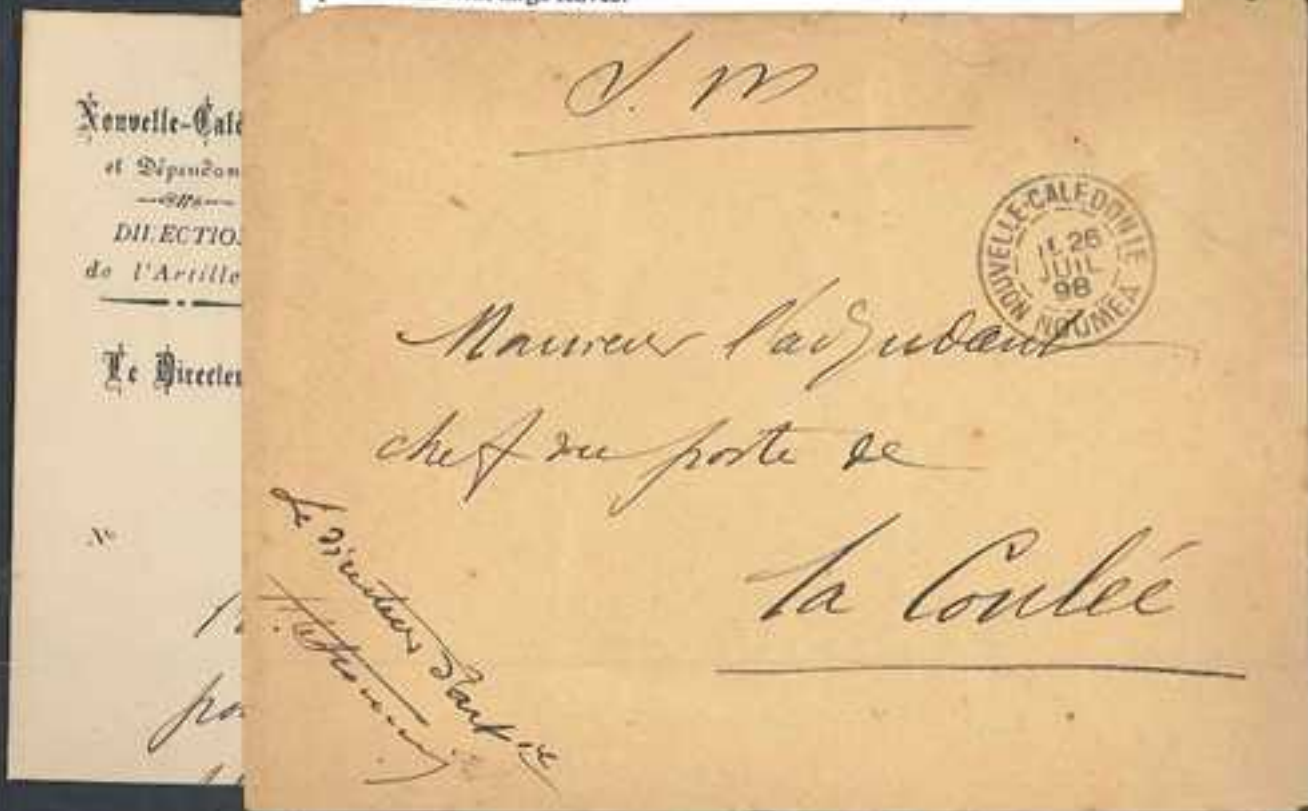 Nouvelle-Calé
et Dépendan
DIRECTIO
de l'Artille
Le Directeu
N°
S. M
NOUVELLE-CALEDONIE
26
JUIL
98
NOUMEA
Monsieur l'adjudant
chef du poste de
la Coulée
Le Directeur d'art